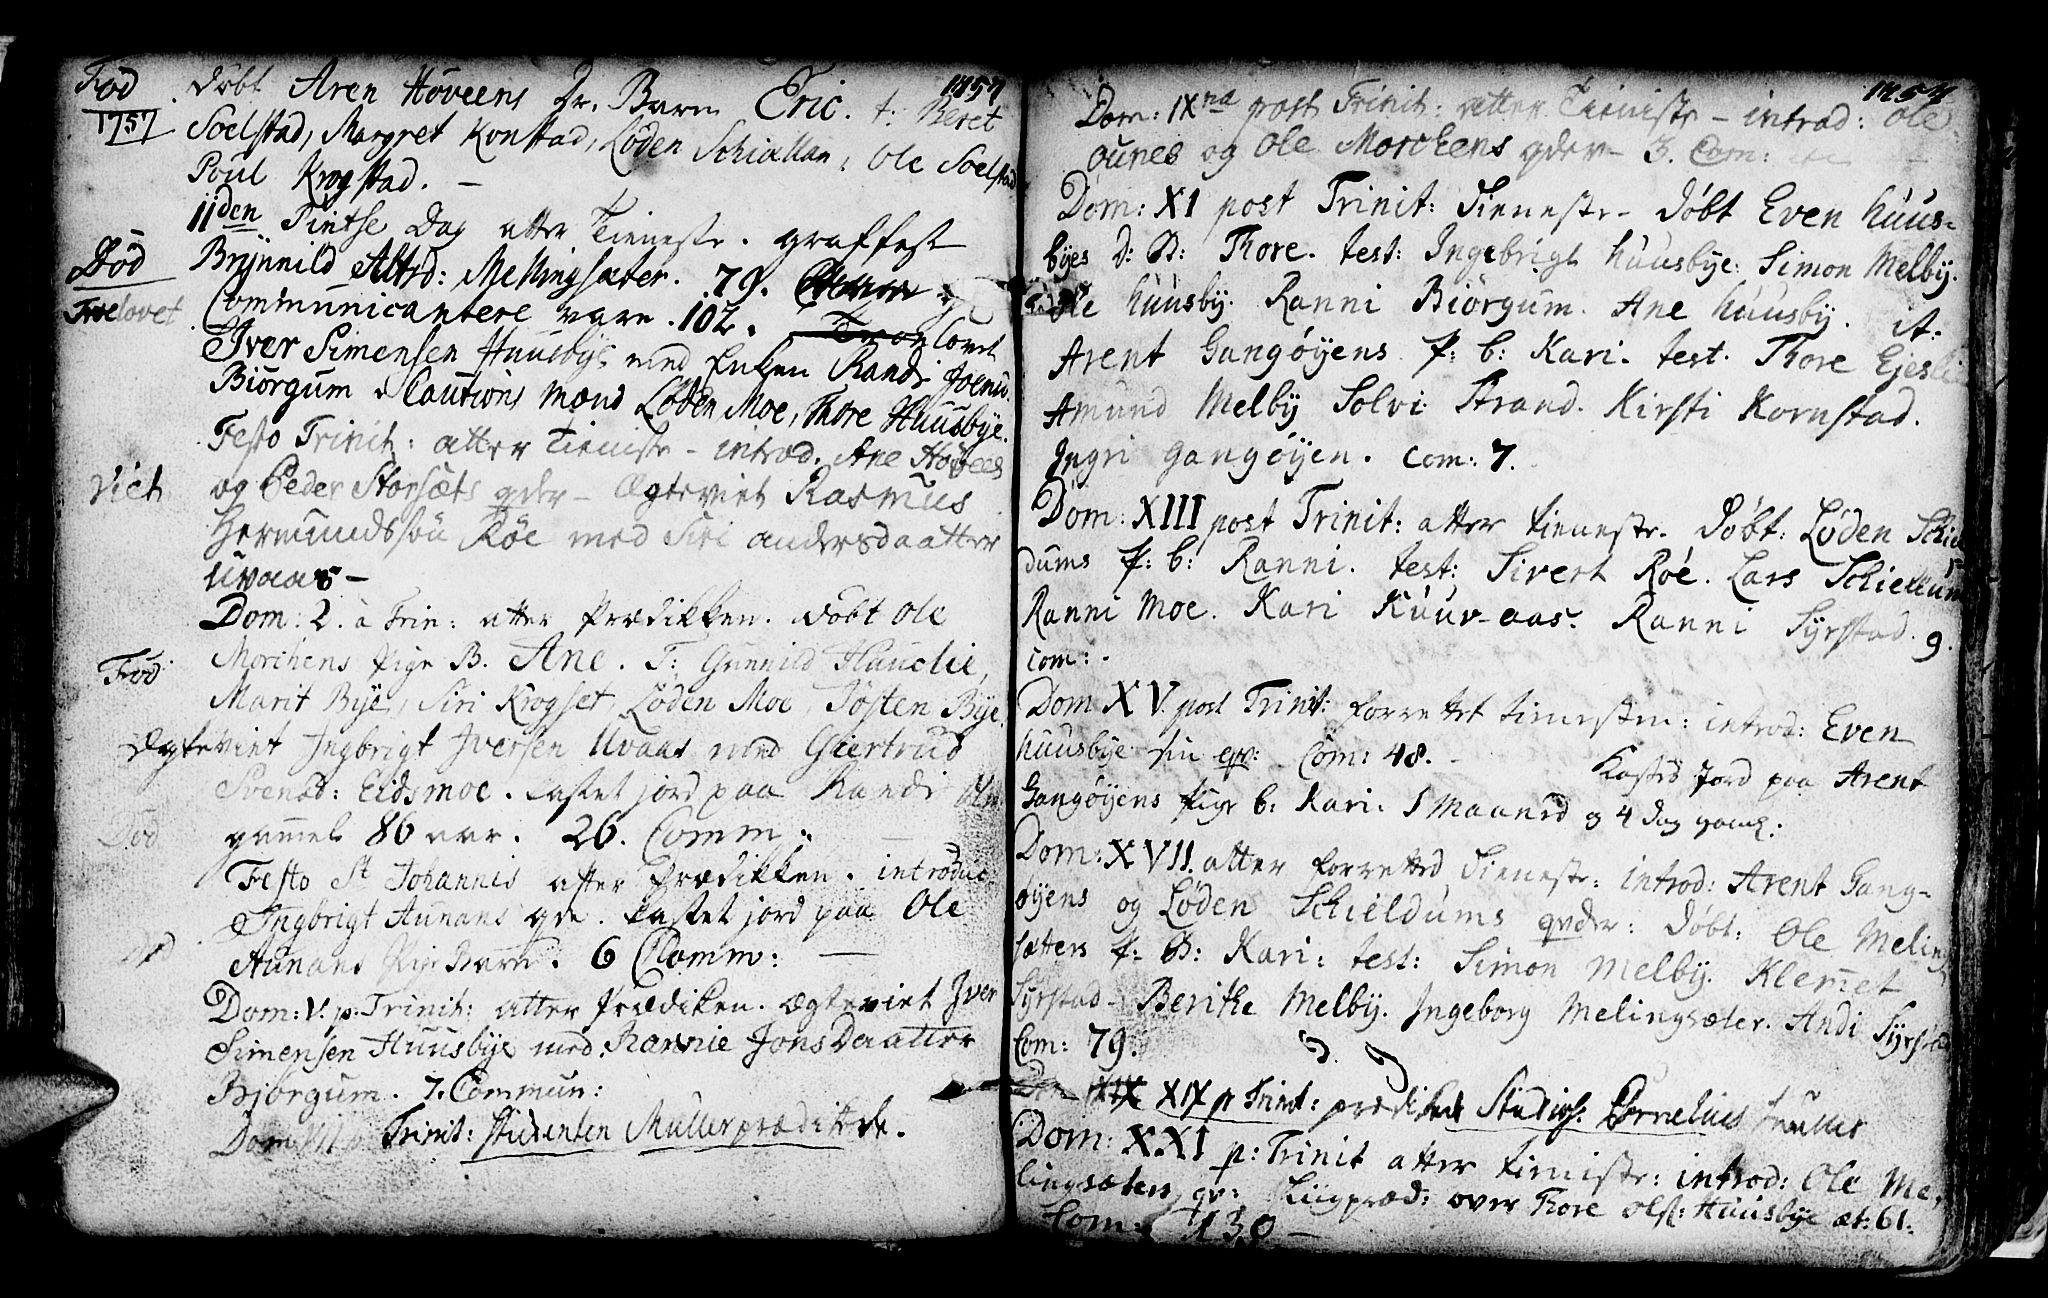 1757
Fød døbt Aren Høveens Dr. Barn Eric. t: Beret
1757 Soelstad, Margret Konstad, Loden Schiallan, Ole Soelstad
Poul Krogstad. –
11den Pintse Dag atter Tieneste. graffest
Død Brynnild Altrd: Mellingsæter. 79.
Communicantere vare. 102.
Troelovet Iver Simensen Huusbye med Enken Randi Joensd.
Biørgum Cautions mænd Loden Moe, Thore Huusbye.
Festo Trinit: atter Tieniste – introd. Ane Høvees
Viet og Peder Storsæts qder – Ægteviet Rasmus
Hermundssøn Røe med Siri andersdaatter
Uvaas –
Dom: 2. à Trin: atter Prædikken. døbt Ole
Fød Morchens Pige B. Ane. T: Gunnild Hauclie,
Marit Bye, Siri Krogset, Loden Moe Josten Bye.
Ægteviet Ingbrigt Iversen Uvaas med Giertrud
Svensd: Eidsmoe. kastet jord paa Randi
Død gammel 86 aar. 26. Comm:
Festo St Johannis after Prædikken. introduc
Ingbrigt Aunans qde. kastet jord paa Ole
Død Aunans Pige Barn. 6 Comm: —
Dom: V. p. Trinit: atter Prædiken. ægteviet Iver
Simensen Huusbye med Rannie Jons Daatter
Bjorgum. 7. Commun:
Dom VII Trinit: studenten Muller prædikede.
1757
Dom: IXna post Trinit: atter Tieniste – introd: Ole
ounes og Ole Morchens qder – 3. Com:
Dom: XI post Trinit: Tieneste – døbt Even Huus-
byes d: B: Thore. test: Ingebrigt Huusbye: Simon Melby.
Ole Huusby. Ranni Biørgum. Ane Huusby. it:
Arent Gangøyens P: b: Kari. test. Thore Ejesli
Amund Melby Solvi Strand. Kirsti Kornstad.
Ingri Gangøyen. Com: 7.
Dom: XIII post Trinit: atter tieneste. døbt: Løden Schiel
dums P: b: Ranni. test: Sivert Røe. Lars Schieldum
Ranni Moe. Kari Kuuv-aas. Ranni Syrstad. 9.
com: .
Dom XV. post Trinit: forrettet tienesten: introd: Even
Huusbye sin qv: Com: 48. –
Kasted Jord paa Arent
Gangøyens Pige b: Kari. 1 Maaned og 4 dag gaml:
Dom: XVII. atter forretted Tieneste: introd: Arent Gang-
øyens og Løden Schieldums qvder: døbt: Ole Meling
sætters P: B: Kari: test: Simon Melby. Klemet
Syrstad – Berithe Melby. Ingeborg Melingsæter. Andi Syrstad
Com: 79.
XIX p Trinit: prædiked Studios: Cornelius
Dom: XXI p: Trinit atter tieniste: introd: Ole Me,
lingsæters qv: Liigpræd: over Thore Ols: Huusbye æt: 61.
Com: 130 –